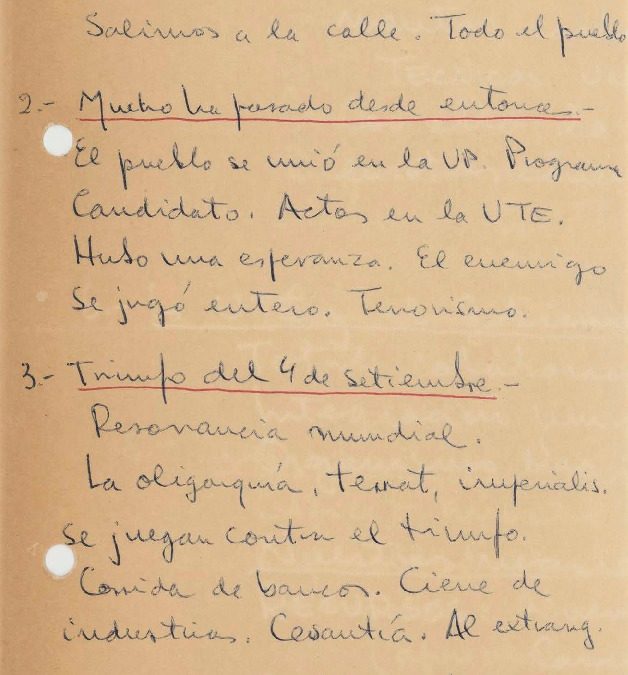 Salimos a la calle. Todo el pueblo
2.- Mucho ha pasado desde entonces.-
El pueblo se unió en la UP. Programa
Candidato. Actos en la UTE.
Hubo una esperanza. El enemigo
se jugó entero. Terrorismo.
3.- Triunfo del 4 de setiembre.-
Resonancia mundial.
La oligarquía, terrat, imperialis.
se juegan contra el triunfo.
Corrida de bancos. Cierre de
industrias. Cesantía. Al extranj.